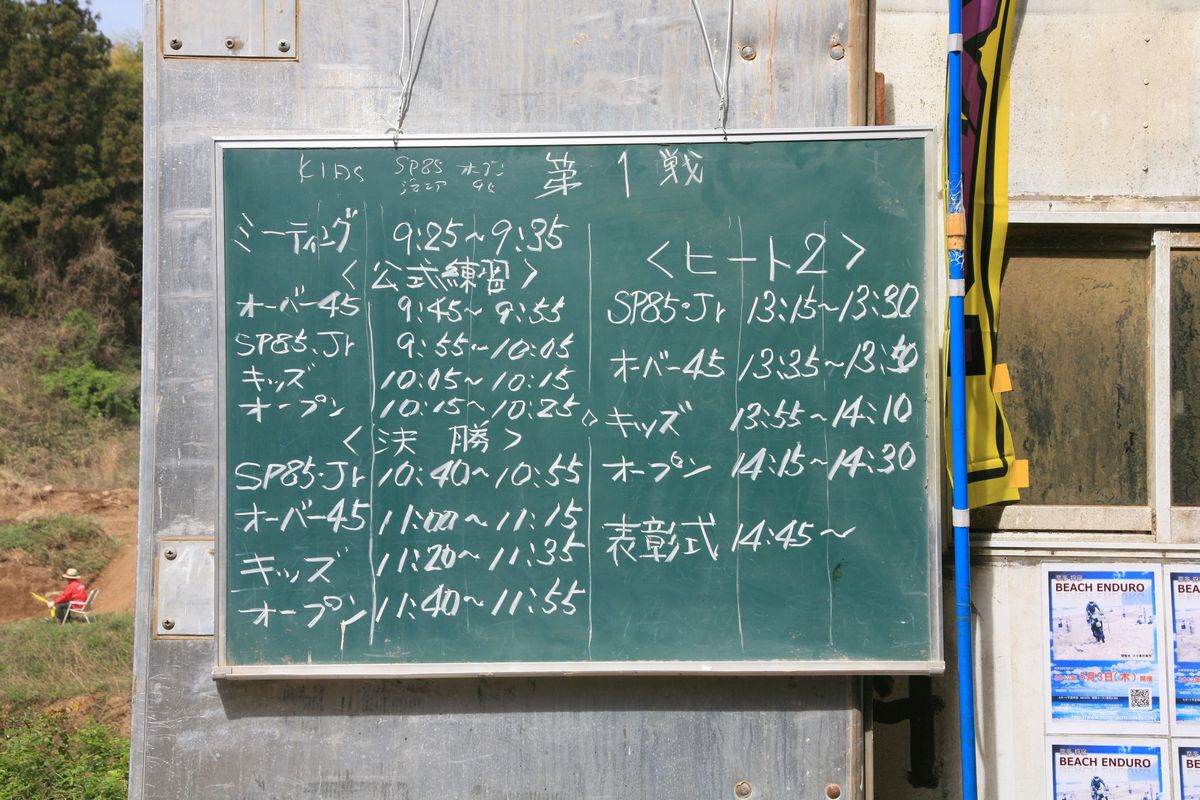 KIDS SP85 オープン 第1戦
ミーティング 9:25~9:35
<公式練習>
オーバー45 9:45~9:55
SP85.Jr 9:55~10:05
キッズ 10:05~10:15
オープン 10:15~10:25
<決勝>
SP85.Jr 10:40~10:55
オーバー45 11:00~11:15
キッズ 11:20~11:35
オープン 11:40~11:55
<ヒート2>
SP85.Jr 13:15~13:30
オーバー45 13:35~13:50
キッズ 13:55~14:10
オープン 14:15~14:30
表彰式 14:45~
BEACH ENDURO
5月3日(木)開催
BEACH ENDURO